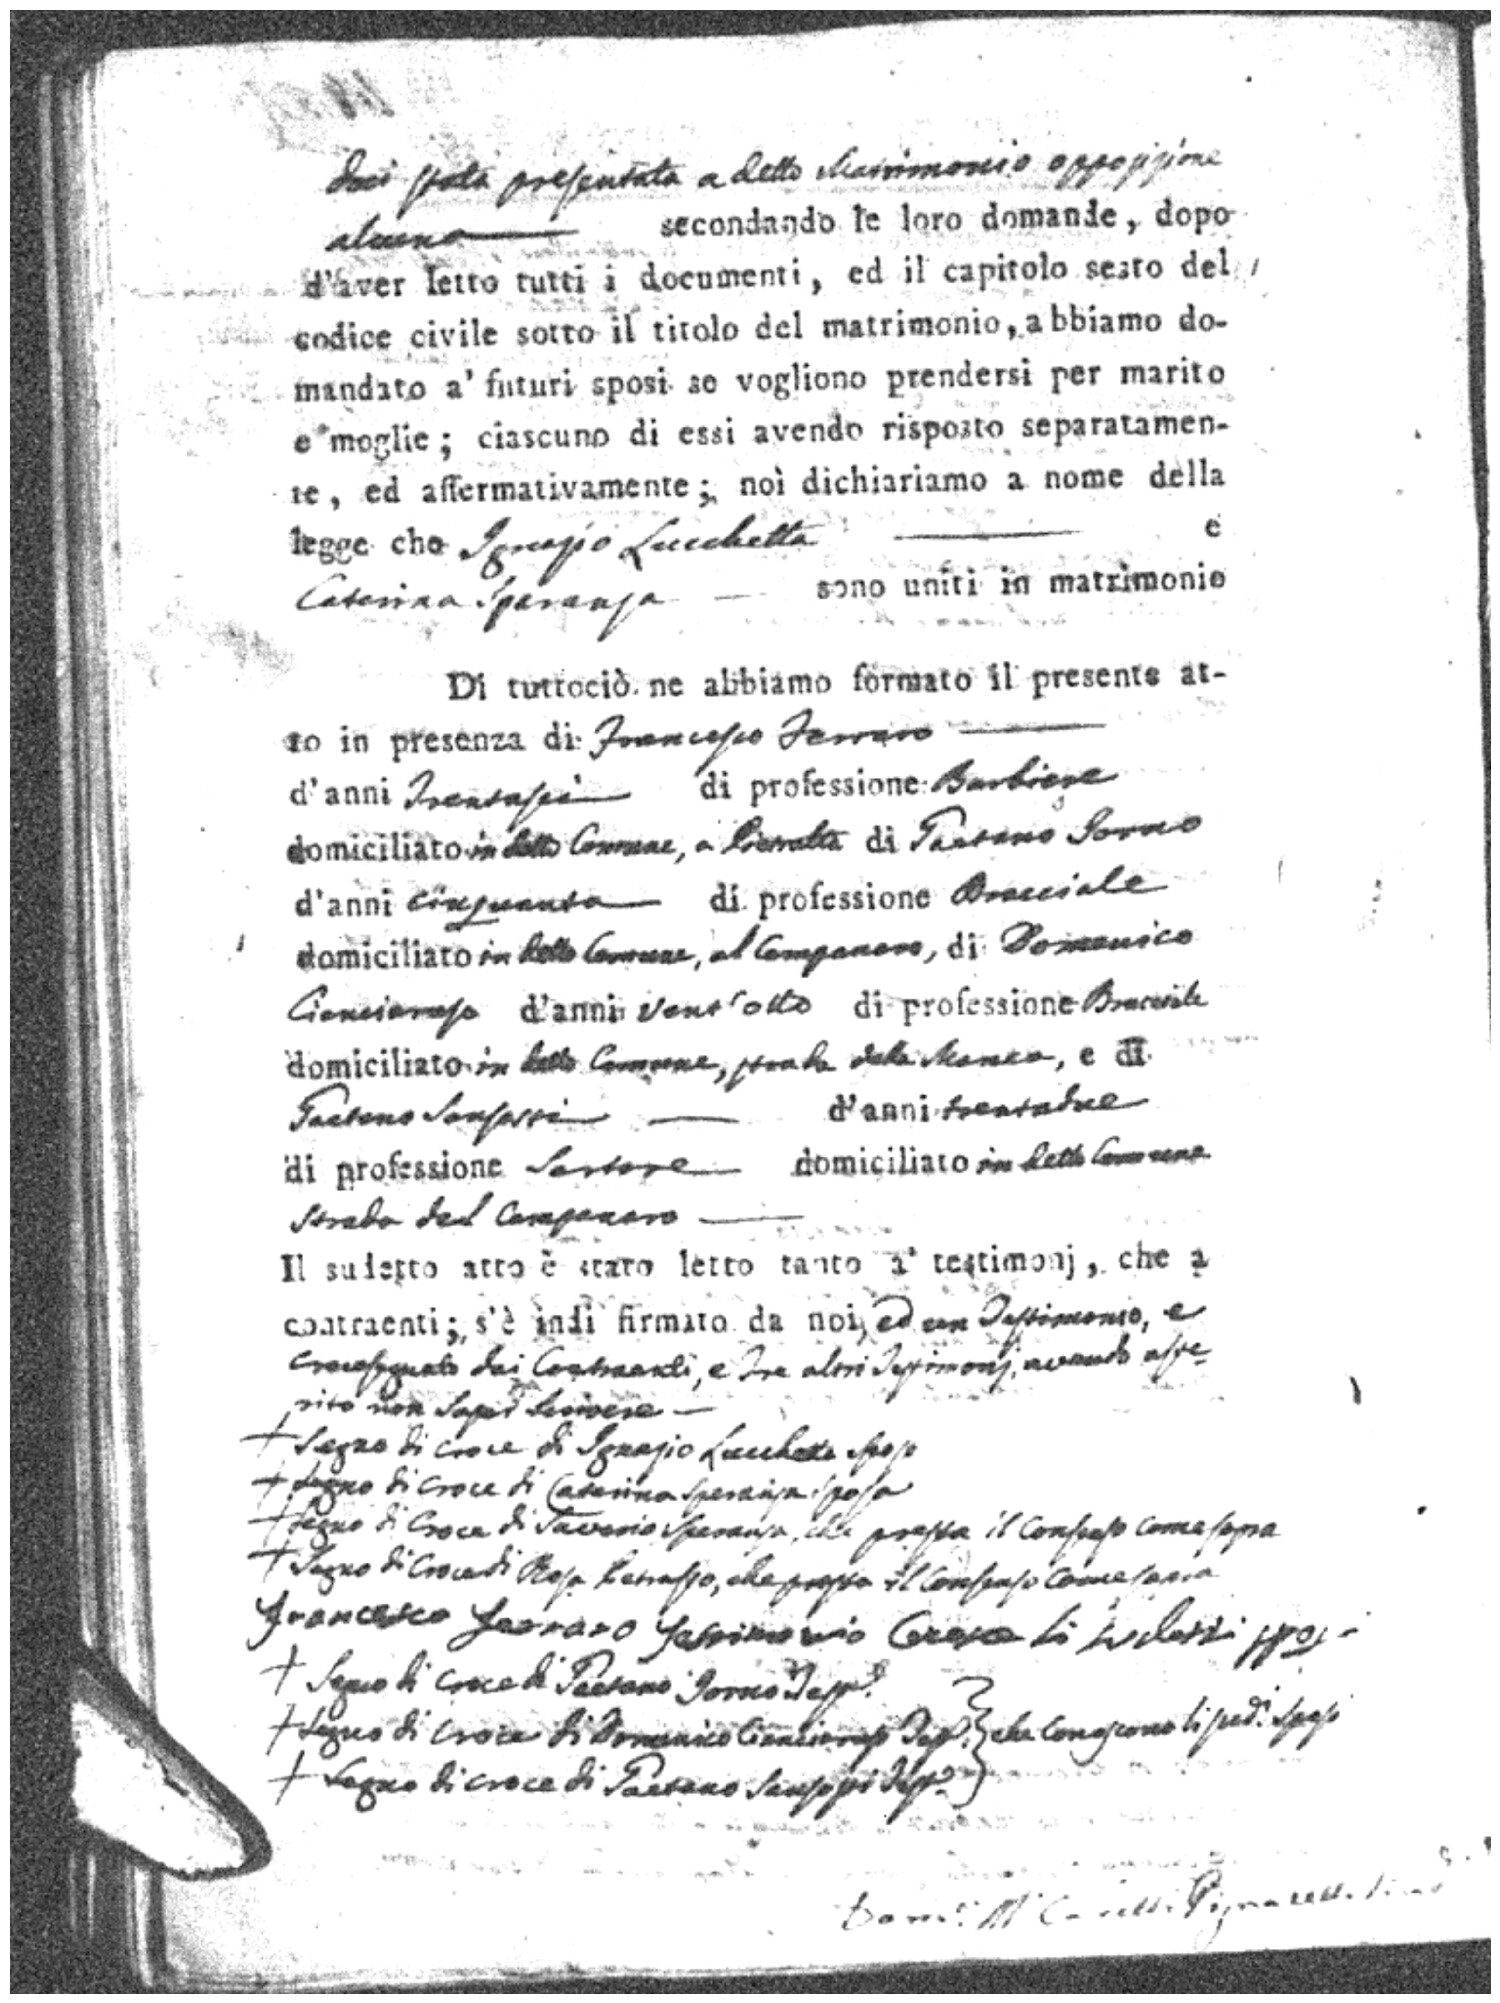 stata presentata a detto Matrimonio opposizione
alcuna secondando le loro domande, dopo
d'aver letto tutti i documenti, ed il capitolo sesto del
codice civile sotto il titolo del matrimonio, abbiamo do-
mandato a' futuri sposi se vogliono prendersi per marito
e moglie; ciascuno di essi avendo risposto separatamen-
te, ed affermativamente; noi dichiariamo a nome della
legge che Ignazio Lucchetta e
Caterina Speranza sono uniti in matrimonio
Di tuttociò ne abbiamo formato il presente at-
to in presenza di Francesco Ferraro
d'anni Trentasei di professione Barbiere
domiciliato in detto Comune, a di Gaetano Iorno
d'anni cinquanta di professione Bracciale
domiciliato in detto Comune, al Campanaro, di Domenico
Cianciaruso d'anni vent'otto di professione Bracciale
domiciliato in detto Comune, strada della Manca, e di
Gaetano Sansossi d'anni trentadue
di professione Sartore domiciliato in detto Comune
Strada del Campanaro
Il sudetto atto è stato letto tanto a' testimonj, che a
contraenti; s'è indi firmato da noi, ed un Testimonio, e
crocesegnato dai Contraenti, e tre altri Testimonj, avendo asse-
rito non saper scrivere
+ Segno di croce di Ignazio Lucchetta sposo
+ Segno di croce di Caterina Speranza sposa
+ Segno di Croce di Saverio Speranza, che presta il consenso come sopra
+ Segno di Croce di Rosa Petrasso, che presta il consenso come sopra
Francesco Ferraro Testimonio li sudetti sposi
+ Segno di croce di Gaetano Iorno Test.o
+ Segno di croce di Domenico Cianciaruso Test.o che conoscono li sud.i sposi
+ Segno di croce di Gaetano Sansossi Test.o
Dom.o